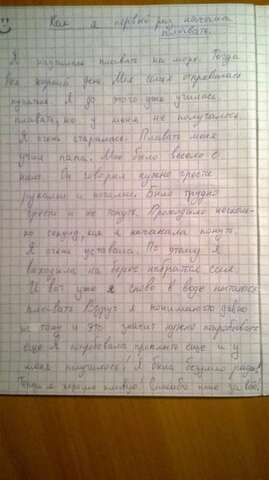 Как я первый раз начала
плавать.
Я научилась плавать на море. Тогда
был жаркий день. Моя семья отправилась
купаться. Я до этого уже училась
плавать, но у меня не получалось.
Я очень старалась. Плавать меня
учил папа. Мне было весело с
ним. Он говорил нужно грести
руками и ногами. Было трудно
грести и не тонуть. Проходило несколь-
ко секунд, как я начинала тонуть.
Я очень уставала. По этому я
выходила на берег набратся сил.
И вот уже я снова в воде пытаюсь
плавать. Вдруг я понимаю что давно
не тону и это значит нужно попробовать
ещё. Я попробовала проплыть ещё и у
меня получилось! Я была безумно рада!
Теперь я хорошо плаваю! Спасибо папе за это!